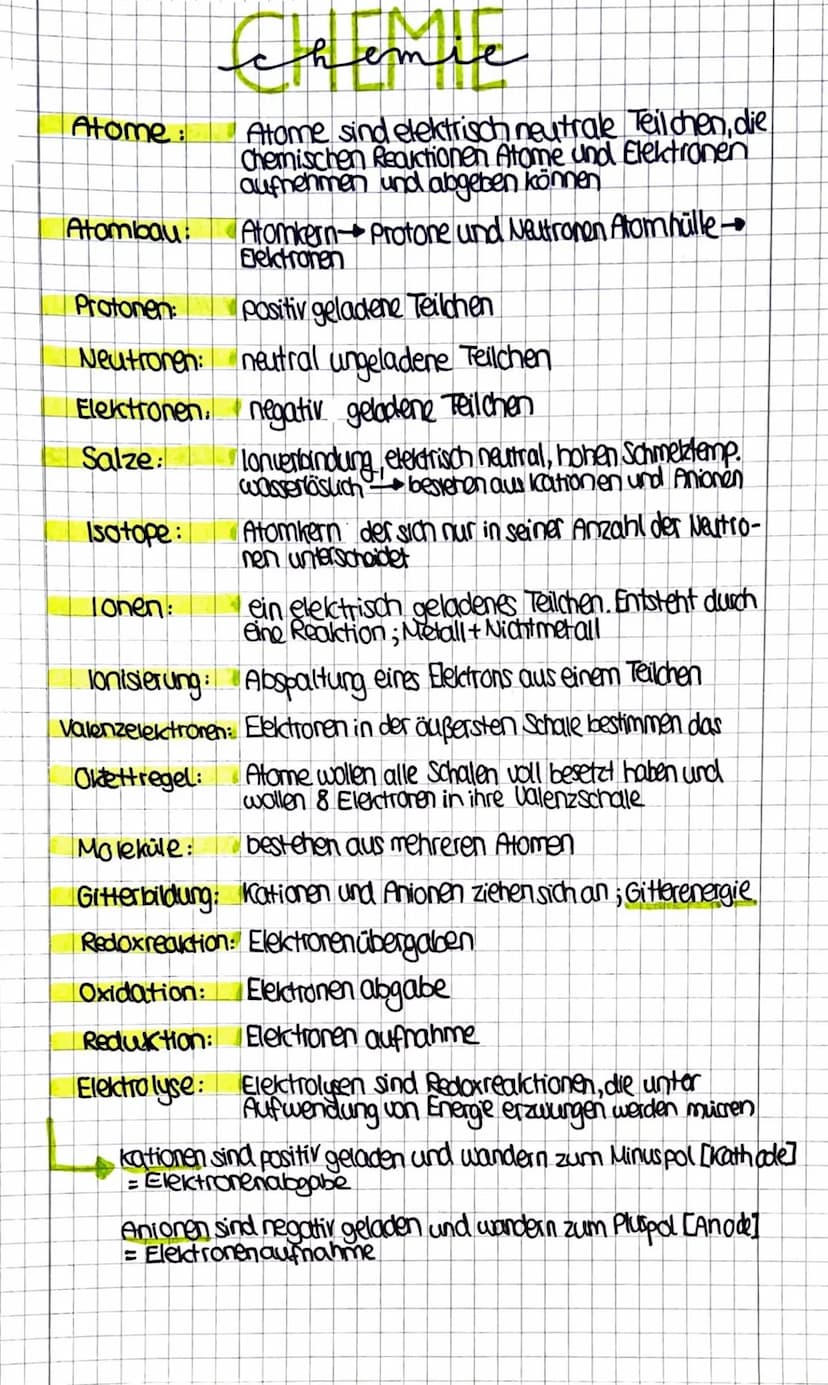 CHEMIE
chemie
Atome: Atome sind elektrisch neutrale Teilchen, die
chemischen Reaktionen Atome und Elektronen
aufnehmen und abgeben können
Atombau: Atomkern → Protone und Neutronen Atomhülle →
Elektronen
Protonen: positiv geladene Teilchen
Neutronen: neutral ungeladene Teilchen
Elektronen. negativ geladene Teilchen
Salze: Ionverbindung, elektrisch neutral, hohen Schmelztemp.
wasserlöslich → bestehen aus Kationen und Anionen
Isotope: Atomkern der sich nur in seiner Anzahl der Neutro-
nen unterscheidet
Ionen: ein elektrisch geladenes Teilchen. Entsteht durch
eine Reaktion; Metall + Nichtmetall
Ionisierung: Abspaltung eines Elektrons aus einem Teilchen
Valenzelektronen: Elektronen in der äußersten Schale bestimmen das
Oktettregel: Atome wollen alle Schalen voll besetzt haben und
wollen 8 Elektronen in ihre Valenzschale
Moleküle: bestehen aus mehreren Atomen
Gitterbildung: Kationen und Anionen ziehen sich an; Gitterenergie
Redoxreaktion: Elektronenübergaben
Oxidation: Elektronen abgabe
Reduktion: Elektronen aufnahme
Elektrolyse: Elektrolysen sind Redoxreaktionen, die unter
Aufwendung von Energie erzwungen werden müssen
Kationen sind positiv geladen und wandern zum Minuspol [Kathode]
= Elektronenabgabe
Anionen sind negativ geladen und wandern zum Pluspol [Anode]
= Elektronenaufnahme